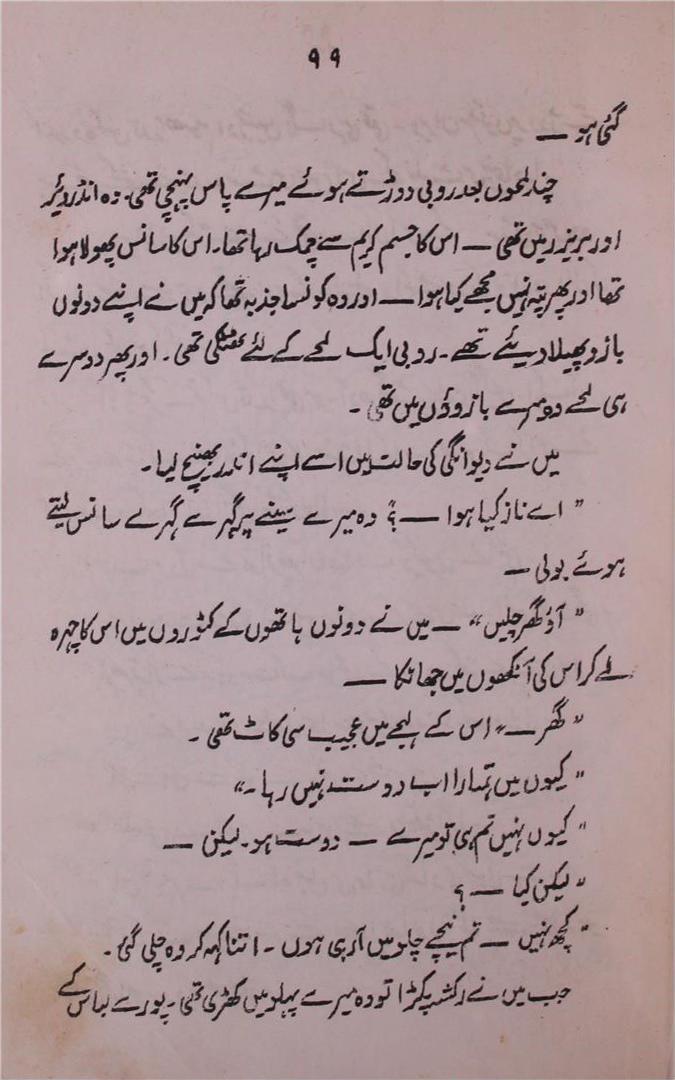 ۹۹
گئی ہو —
چند لمحوں بعد روبی دوڑتے ہوئے میرے پاس پہنچی تھی۔ وہ انڈرویئر
اور بریزر میں تھی — اس کا جسم کریم سے چمک رہا تھا۔ اس کا سانس پھولا ہوا
تھا اور پھر پتہ نہیں مجھے کیا ہوا — اور وہ کونسا جذبہ تھا کہ میں نے اپنے دونوں
بازو پھیلا دیئے تھے۔ روبی ایک لمحے کے لئے ٹھٹکی تھی۔ اور پھر دوسرے
ہی لمحے وہ میرے بازوؤں میں تھی۔
میں نے دیوانگی کی حالت میں اسے اپنے اندر بھینچ لیا۔
”اے ناز کیا ہوا — ؟“ وہ میرے سینے پر گہرے گہرے سانس لیتے
ہوئے بولی —
”آؤ گھر چلیں“ — میں نے دونوں ہاتھوں کے کٹوروں میں اس کا چہرہ
لے کر اس کی آنکھوں میں جھانکا —
”گھر —“ اس کے لہجے میں عجیب سی کاٹ تھی۔
”کیوں میں تمہارا اب دوست نہیں رہا۔“
”کیوں نہیں تم ہی تو میرے — دوست ہو۔ لیکن —
”لیکن کیا — ؟
”کچھ نہیں — تم نیچے چلو میں آ رہی ہوں۔ اتنا کہہ کر وہ چلی گئی۔
جب میں نے رکشہ پکڑا تو وہ میرے پہلو میں کھڑی تھی۔ پورے لباس کے